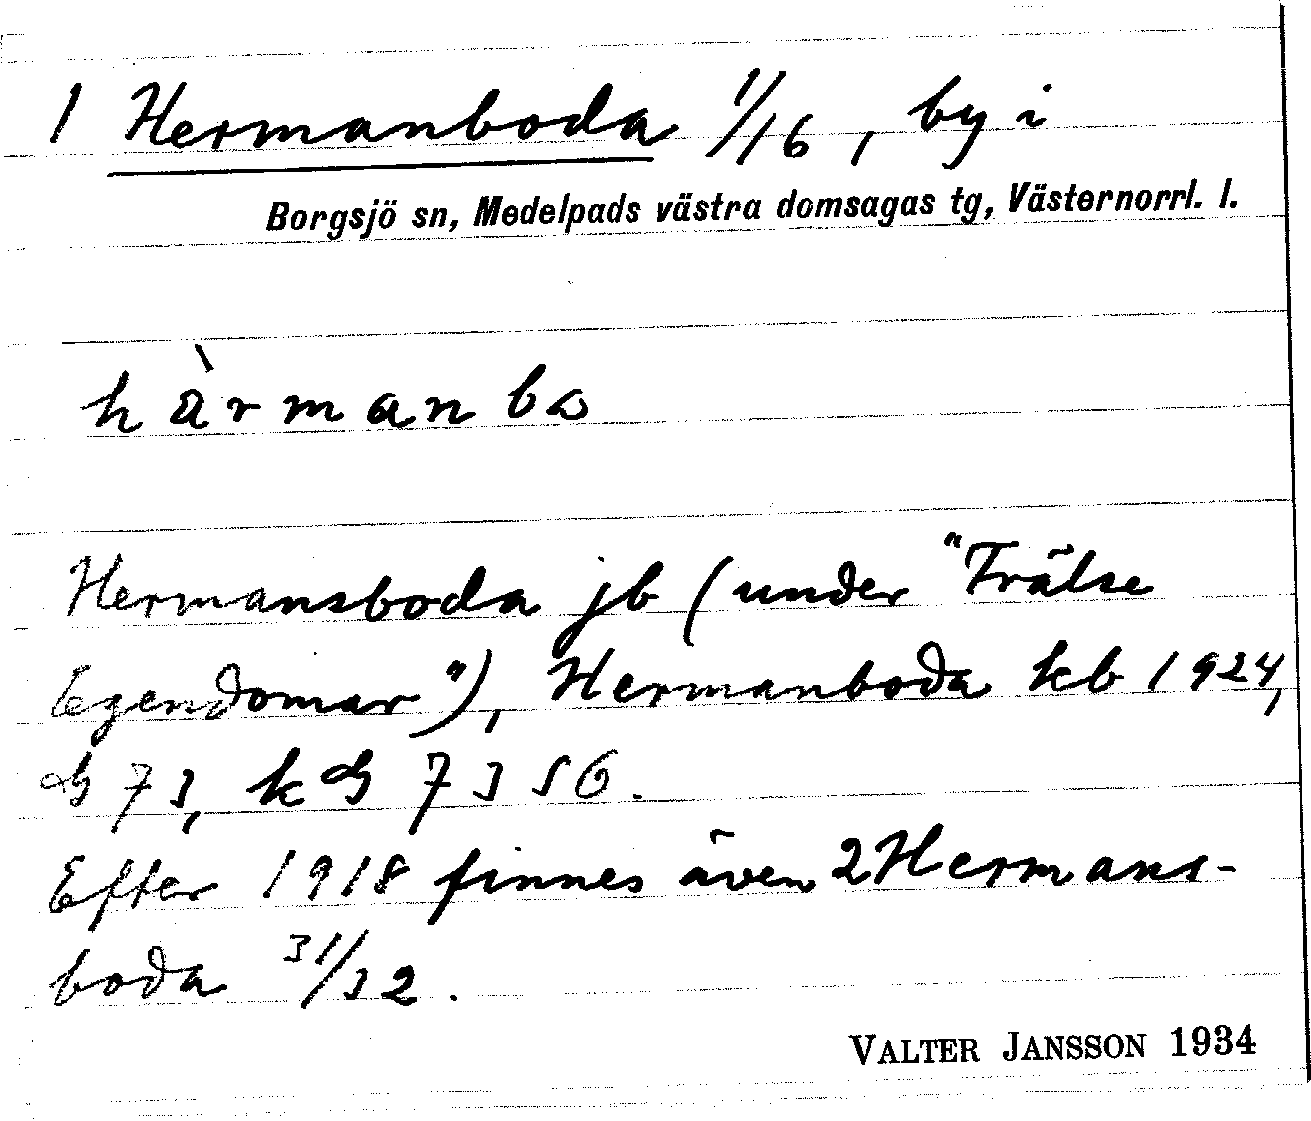 1 Hermanboda 1/16, by i
Borgsjö sn, Medelpads västra domsagas tg, Västernorrl. l.
hàrmanbω
Hermansboda jb (under "Frälse
Egendomar"), Hermanboda kb 1924,
GS 73, k GS 7356.
Efter 1918 finnes även 2 Hermans-
boda 31/32.
VALTER JANSSON 1934